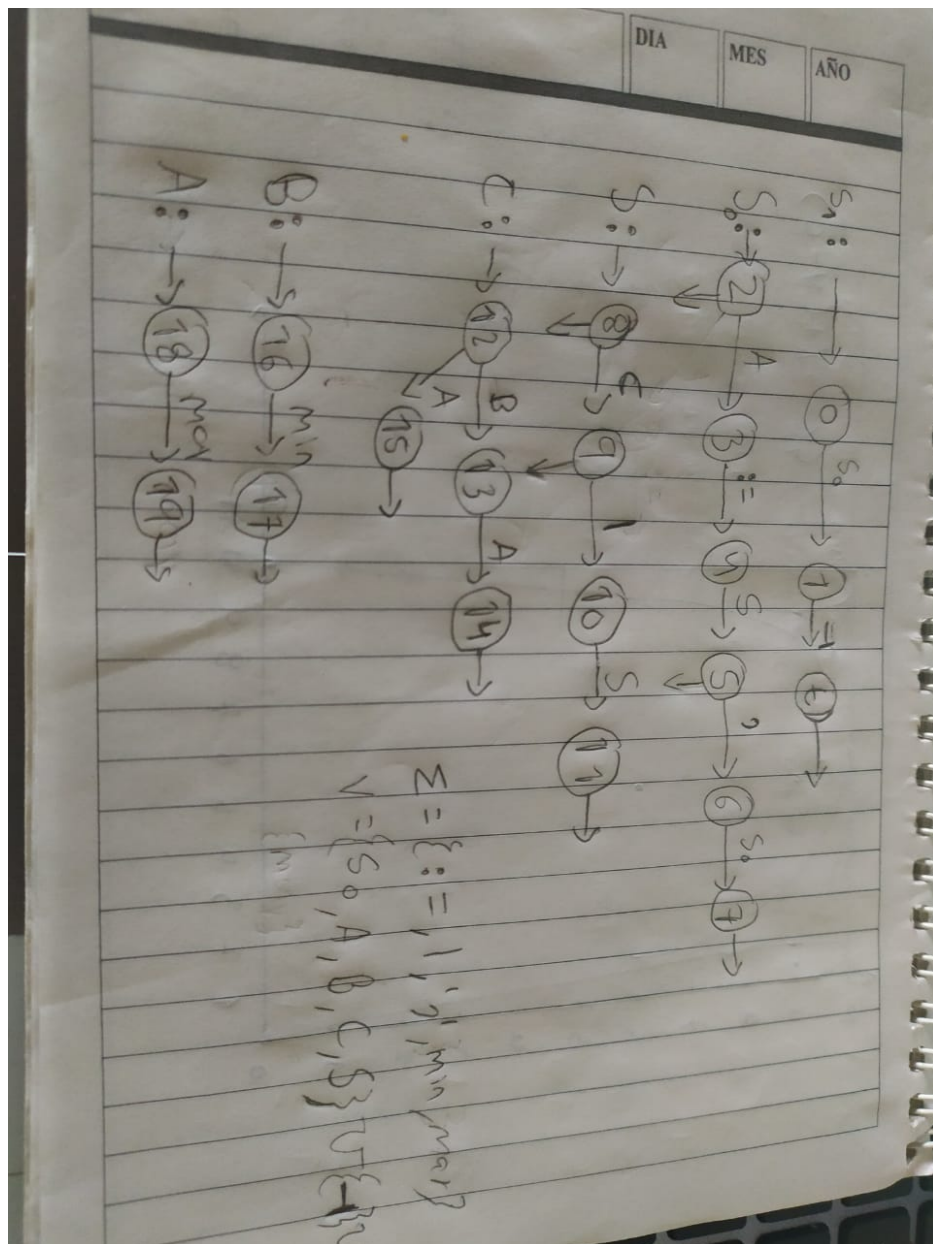 DIA MES AÑO
S1: → 0 S0 → 1 ⊣ → t →
S0: → 2 A → 3 := → 4 S → 5 , → 6 S0 → 7 →
S: → 8 C → 9 | → 10 S → 11 →
C: → 12 B → 13 A → 14 →
A 15 →
B: → 16 min → 17 →
A: → 18 may → 19 →
Σ = {:=, |, ',', min, may}
V = {S0, A, B, C, S} ∪ {⊣}